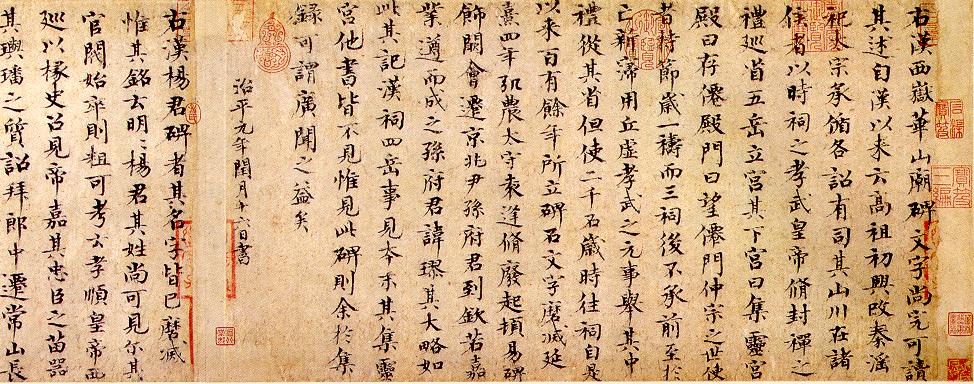 右漢西嶽華山廟碑文字尚完可讀
其述自漢以来云高祖初興改秦淫
祀太宗承循各詔有司其山川在諸
侯者以時祠之孝武皇帝脩封禪之
禮巡省五岳立宮其下宮曰集靈宮
殿曰存僊殿門曰望僊門仲宗之世使
者持節歲一禱而三祠後不承前至於
亡新寖用丘虛孝武之元事舉其中
禮從其省但使二千石歲時往祠自是
以来百有餘年所立碑石文字磨滅延
熹四年弘農太守袁逢脩廢起頓易碑
飾闕會遷京兆尹孫府君到欽若嘉
業遵而成之孫府君諱璆其大略如
此其記漢祠四岳事見本末其集靈
宮他書皆不見惟見此碑則余於集
錄可謂廣聞之益矣
治平元年閏月十六日書
右漢楊君碑者其名字皆已磨滅
惟其銘云明明楊君其姓尚可見尓其
官閥始卒則粗可考云孝順皇帝西
巡以掾史召見帝嘉其忠臣之苗器
其璵璠之質詔拜郎中遷常山長